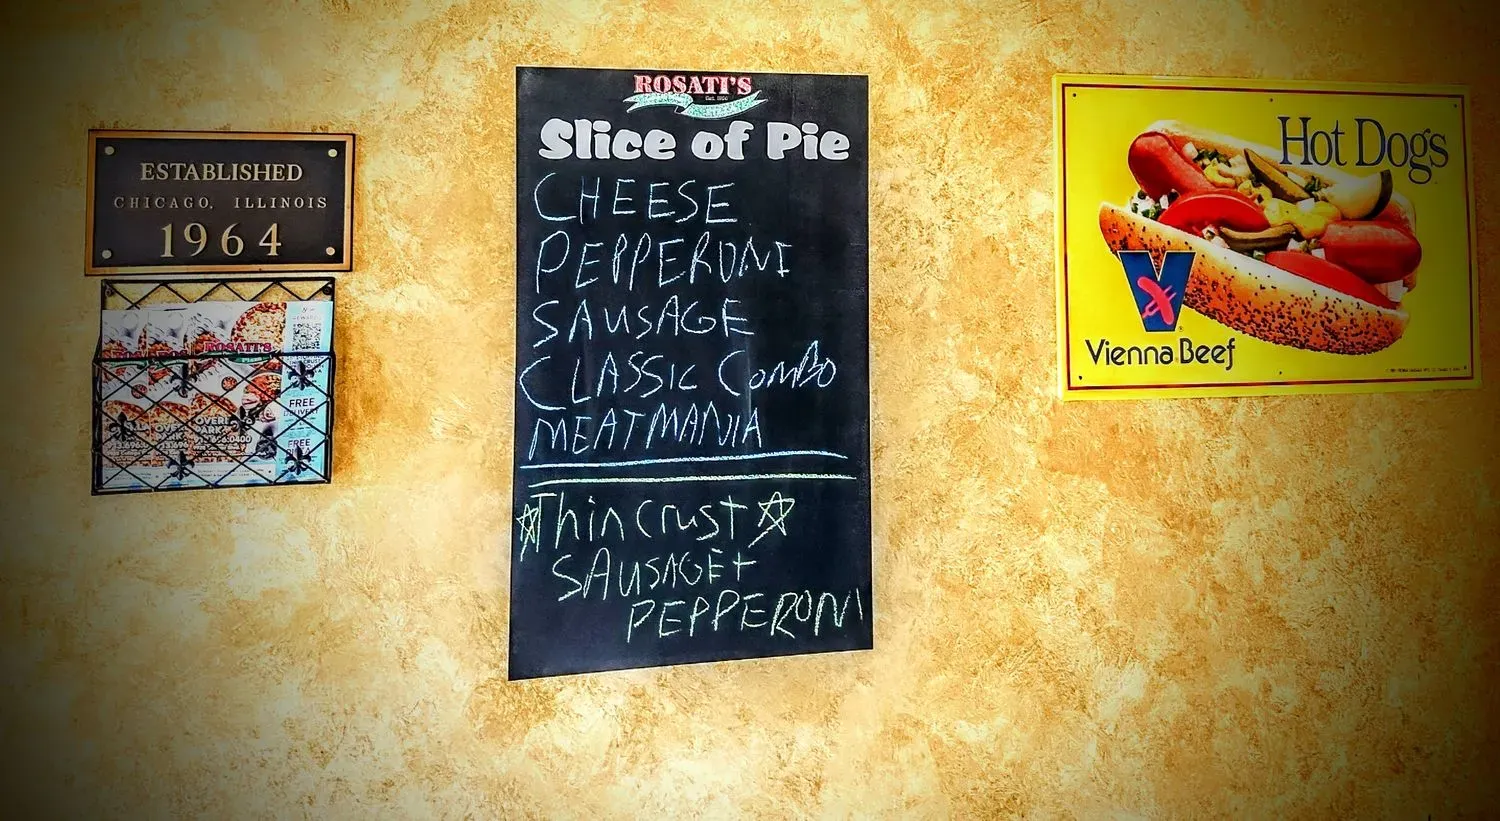 ESTABLISHED
CHICAGO, ILLINOIS
1964
ROSATI'S
FREE
DELIVERY
FREE
ROSATI'S
Est. 1964
Slice of Pie
CHEESE
PEPPERONI
SAUSAGE
CLASSIC COMBO
MEATMANIA
Thin Crust
SAUSAGE +
PEPPERONI
Hot Dogs
V
Vienna Beef